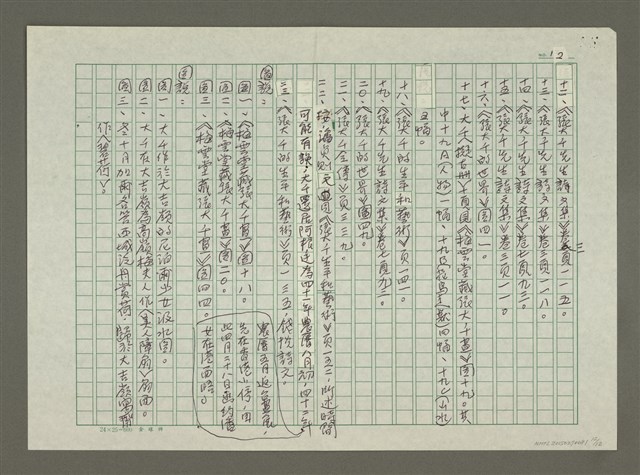 12
十二、《張大千先生詩文集》卷三頁一一五。
十三、《張大千先生詩文集》卷三頁一一八。
十四、《張大千先生詩文集》卷七頁九三。
十五、《張大千先生詩文集》卷三頁一一。
十六、《張大千的世界》圖四一。
十七、大千《》十二頁圖《梅雲堂藏張大千畫》圖十九。其
中十九民人物一幅、十九民鳥走獸四幅、十九民山水
五幅。
十八、《張大千的生平和藝術》頁一四一。
十九、《張大千先生詩文集》卷七頁九二。
二〇、《張大千的世界》圖四九。
二一、《張大千全傳》頁三三九。
二二、按論定《張大千生平和藝術》頁一五二所述時間
可能有誤，大千遷居阿根廷為四十一年農曆八月初，四十二年
農曆五月返台畫展，
先在香港小停，由
此四月二十八日在約
女在巴西時。
二三、《張大千的生平和藝術》頁一三五，錢悅詩文。
圖說：
圖一：《梅雲堂藏張大千畫》圖十八。
圖二：《梅雲堂藏張大千畫》圖二〇。
圖三：《梅雲堂藏張大千畫》圖四四。
圖說：
圖一、大千作於大吉嶺的尼泊爾少女汲水圖。
圖二、大千在大吉嶺為高嶺梅夫人作《美人障扇》扇面。
圖三、冬十月加爾各答西城泛舟賞荷歸於大吉嶺寫
作《碧荷》。
24×25=600